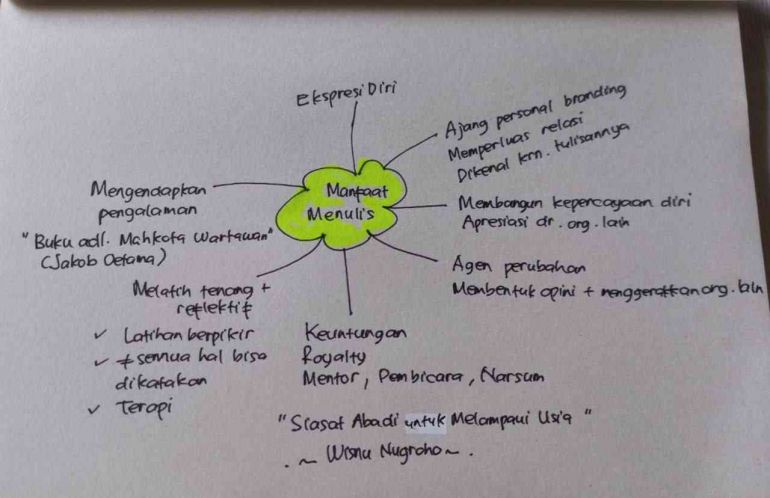 Ekspresi Diri
Ajang personal branding
Memperluas relasi
Dikenal krn. tulisannya
Manfaat
Menulis
Mengendapkan
pengalaman
"Buku adl. Mahkota Wartawan"
(Jakob Oetama)
Membangun kepercayaan diri
Apresiasi dr. org. lain
Agen perubahan
Membentuk opini + menggerakkan org. lain
Melatih tenang +
reflektif
✓ Latihan berpikir
✓ ≠ semua hal bisa
dikatakan
✓ Terapi
Keuntungan
Royalty
Mentor, Pembicara, Narsum
"Siasat Abadi untuk Melampaui Usia"
. ~ Wisnu Nugroho ~ .